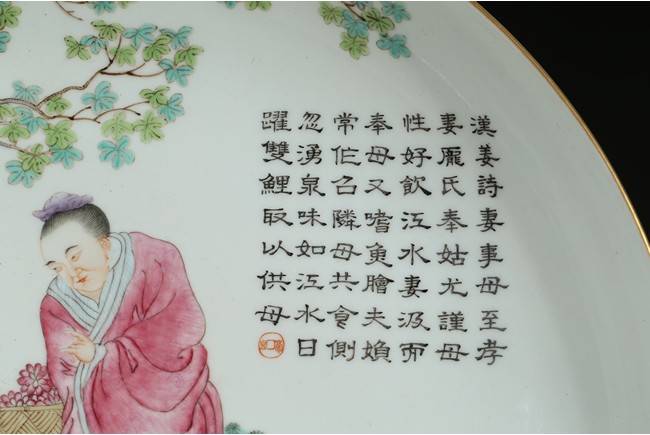 漢姜詩妻事母至孝
妻龎氏奉姑尤謹母
性好飲江水妻汲而
奉母又嗜魚膾夫媍
常作召隣母共食側
忽湧泉味如江水日
躍雙鯉取以供母